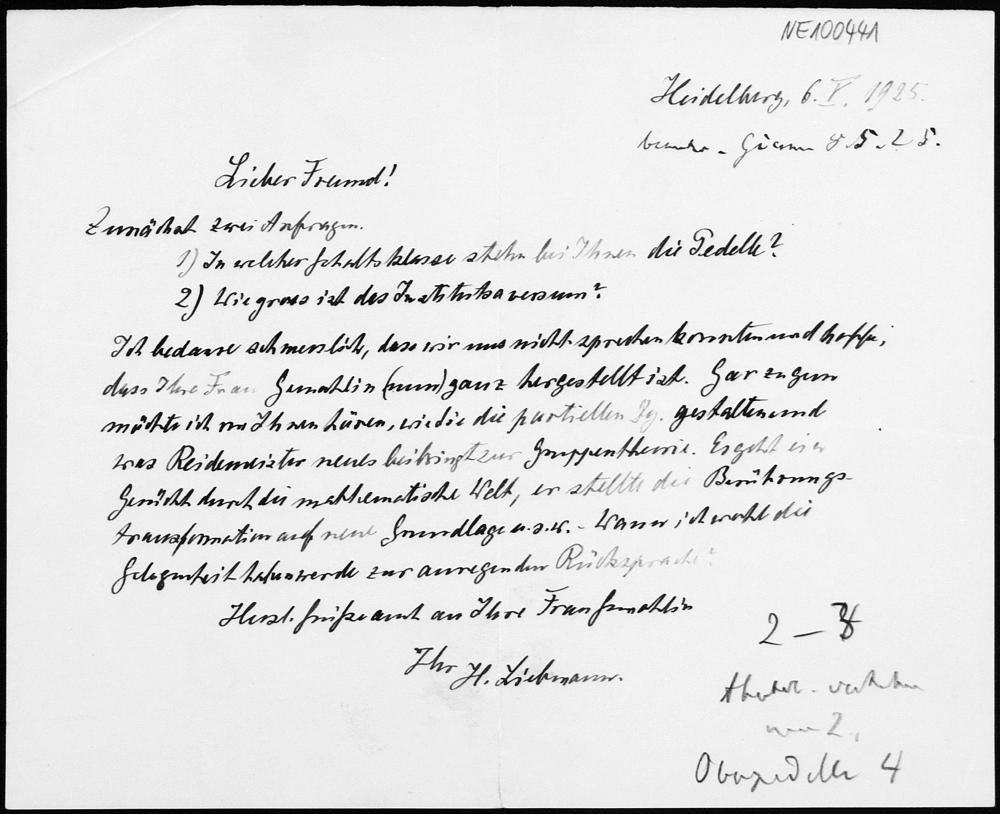 NE100441
Heidelberg, 6. V. 1925.
8.5.25.
Lieber Freund!
Zunächst zwei Anfragen.
1) In welcher Gehaltsklasse stehn bei Ihnen die Pedelle?
2) Wie gross ist das Institutsaversum?
Ich bedaure schmerzlich, dass wir uns nicht sprechen konnten und hoffe,
dass Ihre Frau Gemahlin (nun) ganz hergestellt ist. Gar zu gern
möchte ich von Ihnen hören, wie Sie die partiellen Dg. gestalten und
was Reidemeister neues beibringt zur Gruppentheorie. Es geht ein
Gerücht durch die mathematische Welt, er stellte die Berührungs-
transformation auf neue Grundlage u.s.w. - Wann ich wohl die
Gelegenheit haben werde zur anregenden Rücksprache?
Herzl. Grüsse auch an Ihre Frau Gemahlin
Ihr H. Liebmann.
2 -
2.,
Oberpedelle 4